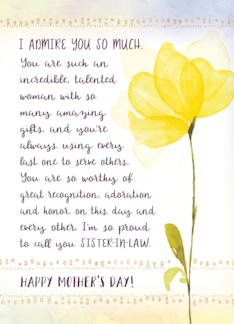 I ADMIRE YOU SO MUCH.
You are such an
incredible, talented
woman with so
many amazing
gifts, and you're
always using every
last one to serve others.
You are so worthy of
great recognition, adoration
and honor on this day and
every other. I'm so proud
to call you SISTER-IN-LAW.
HAPPY MOTHER'S DAY!